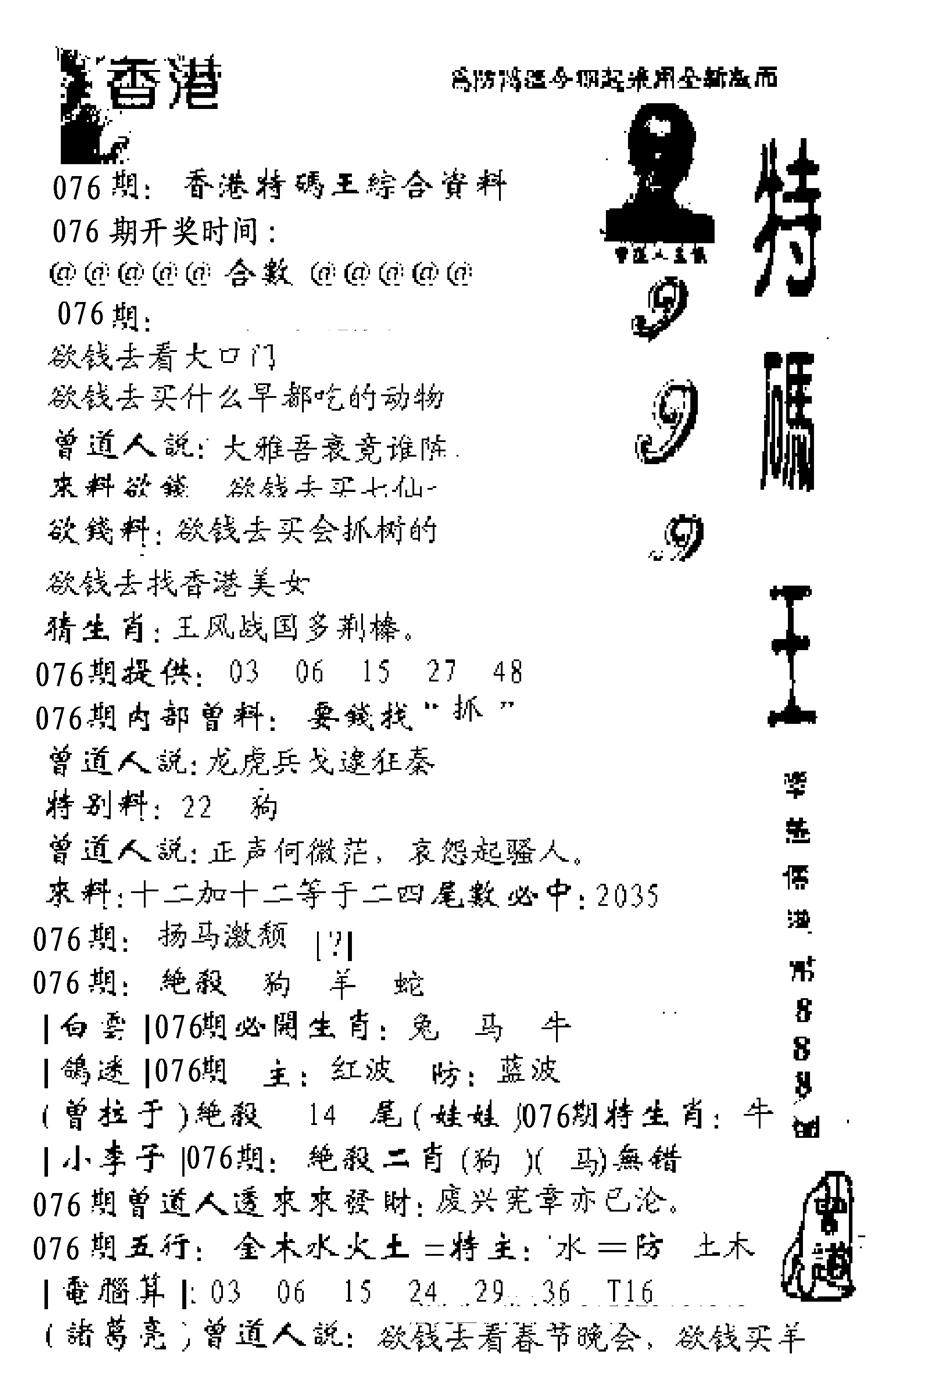 香港
076期：香港特碼王綜合資料
076期开奖时间：
@@@@@ 合數 @@@@@
076期：
欲钱去看大口门
欲钱去买什么早都吃的动物
曾道人説：大雅吾衰竟谁陈.
來料欲錢 欲钱去买七仙
欲錢料：欲钱去买会抓树的
欲钱去找香港美女
猜生肖：王风战国多荆榛。
076期提供： 03 06 15 27 48
076期内部曾料： 要錢找“抓”
曾道人説：龙虎兵戈逮狂秦
特别料： 22 狗
曾道人説：正声何微茫，哀怨起骚人。
來料：十二加十二等于二四尾數必中：2035
076期： 扬马激颓 [?]
076期： 絶殺 狗 羊 蛇
|白雲|076期必開生肖：兔 马 牛
|鴿迷|076期 主：红波 防：蓝波
(曾拉于)絶殺 14 尾(娃娃)076期特生肖：牛
|小李子|076期： 絶殺二肖(狗 )( 马)無错
076期曾道人透來來發財：废兴宪章亦已沦。
076期五行： 金木水火土=特主：水=防 土木
|電腦算|：03 06 15 24 29 36 T16
(諸葛亮)曾道人説：欲钱去看春节晚会，欲钱买羊
特碼王
9
9
9
888
曾道